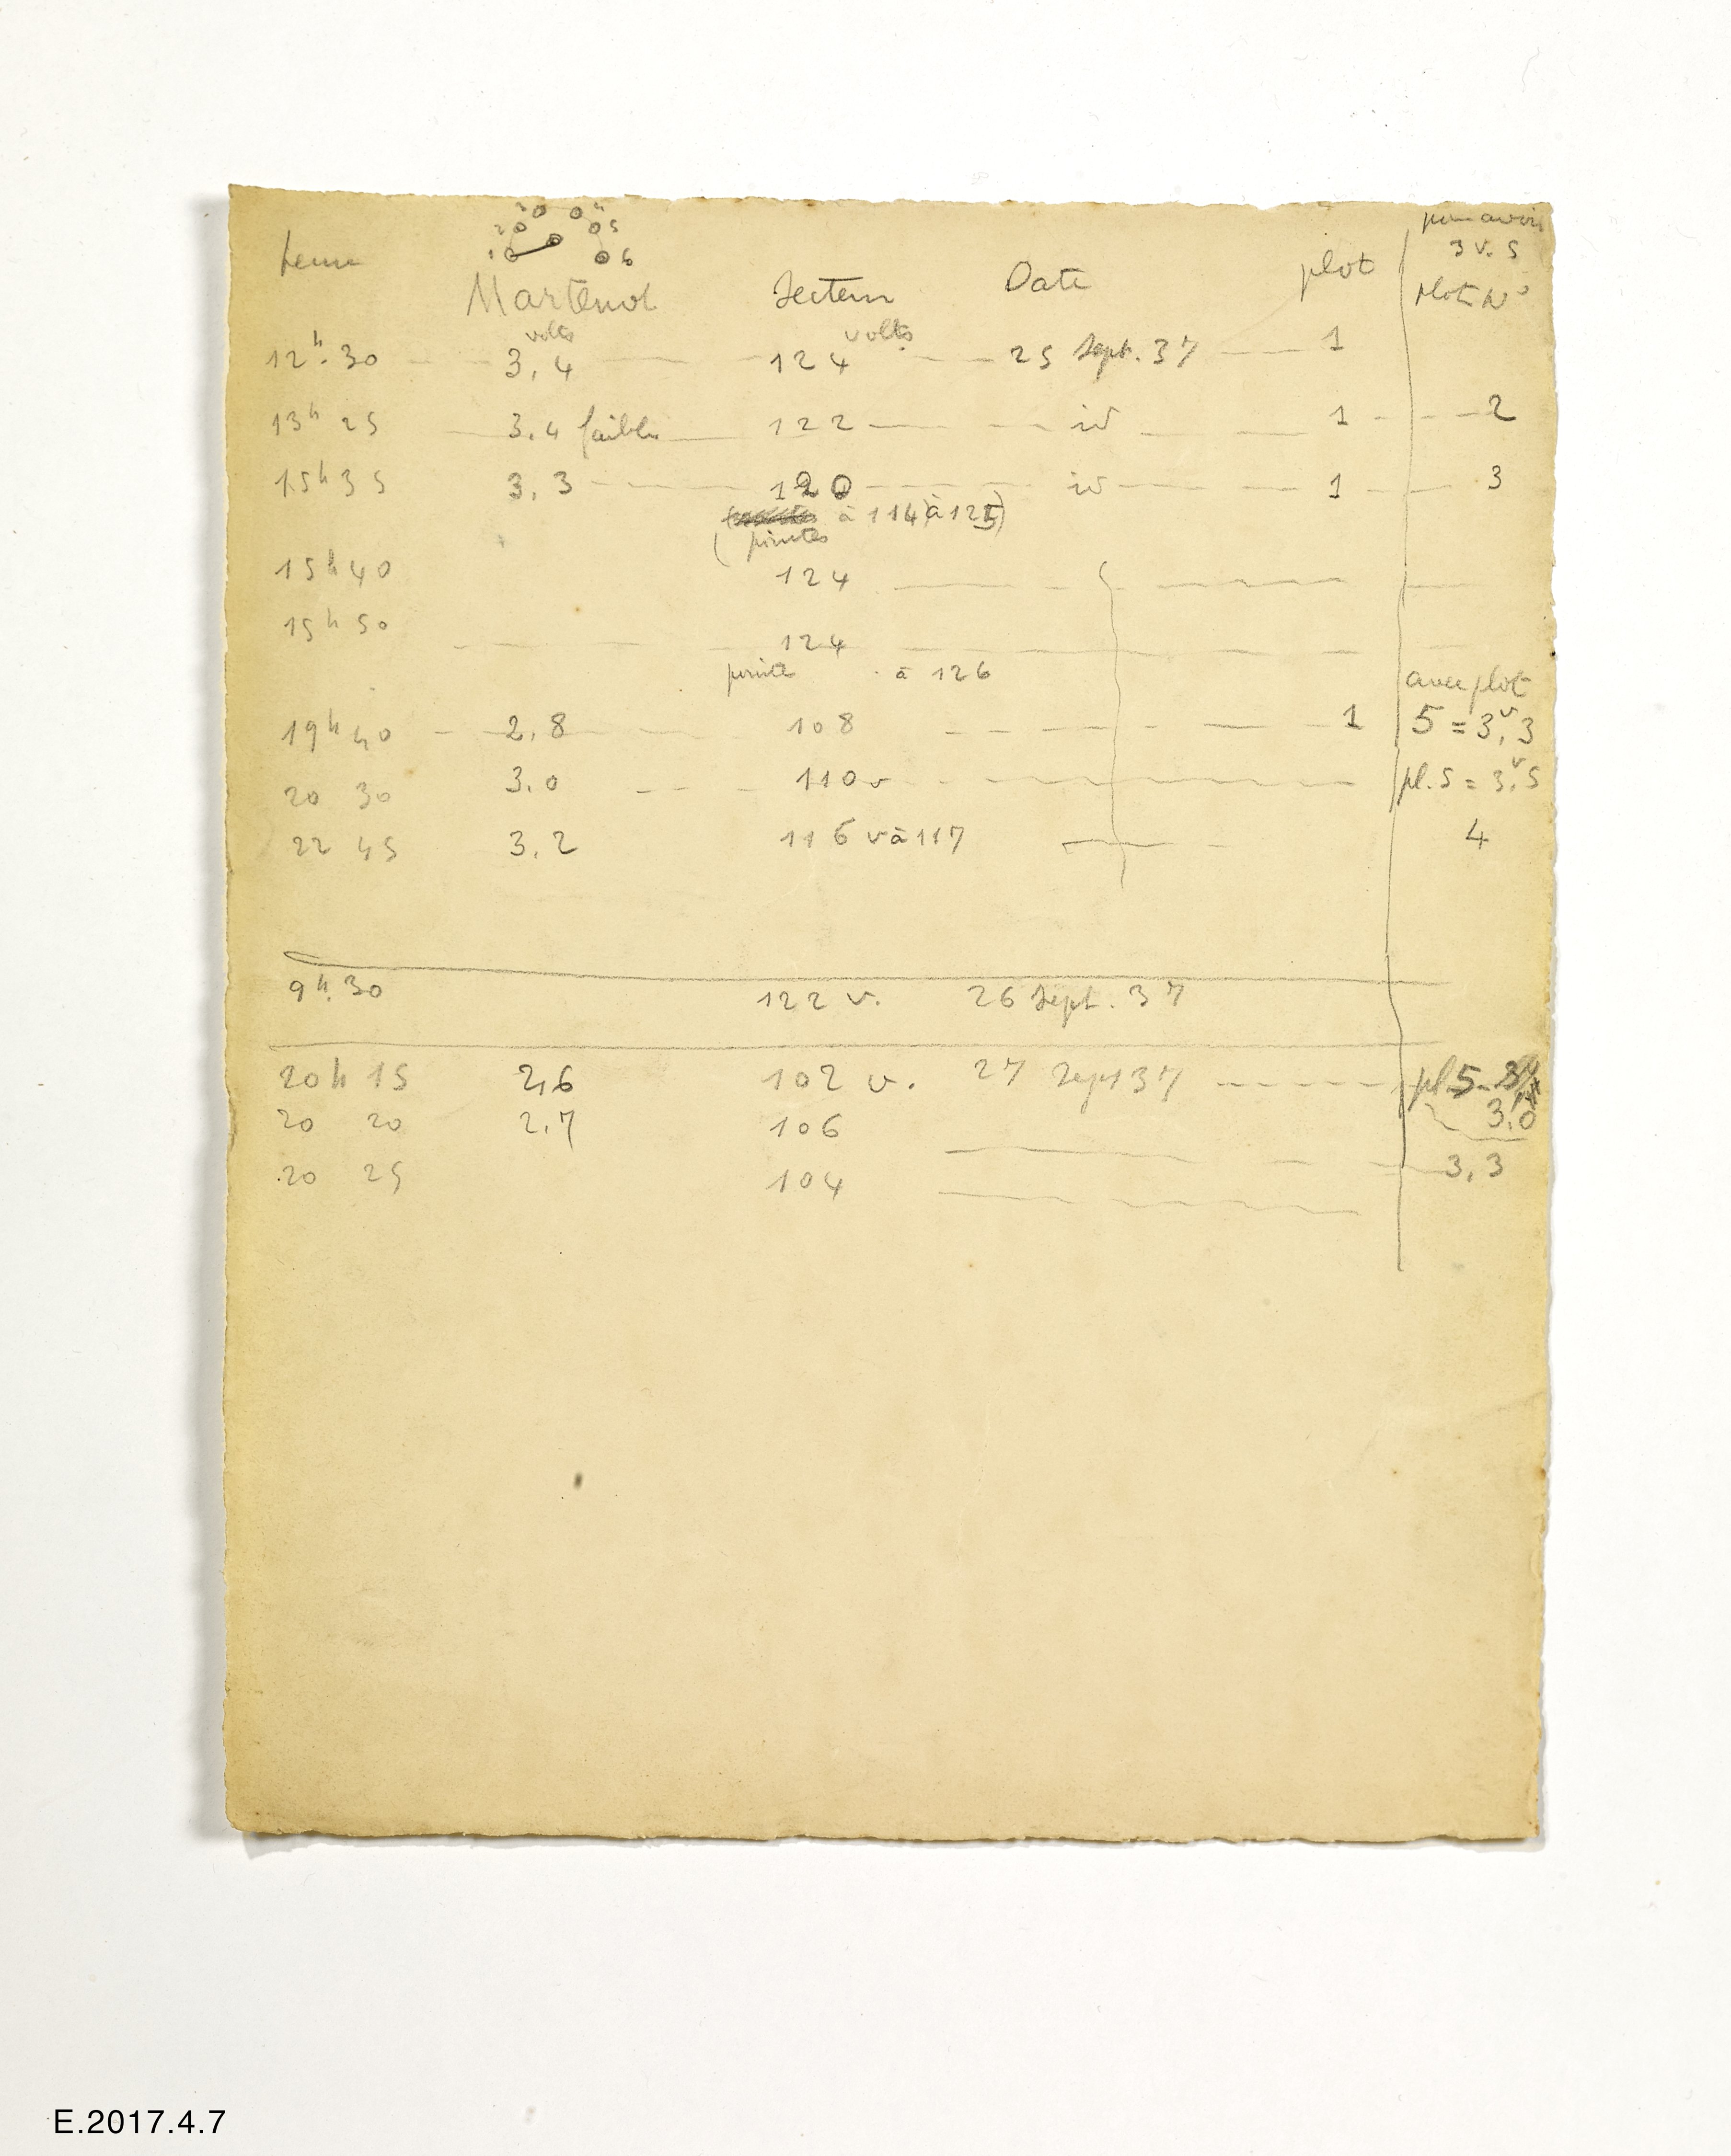 3 4
2 5
1 6
pour avoir
3 v. 5
heure Martenot Secteur Date plot plot N°
volts volts
12h. 30 3,4 124 25 Sept. 37 1
13h 25 3.4 faible 122 id 1 2
15h 35 3,3 120 id 1 3
à 114 à 125)
( pointes
15h 40 124
15h 50 124
pointe à 126
avec plot
19h 40 2,8 108 1 5 = 3v,3
20 30 3.0 110 v pl. 5 = 3v,5
22 45 3,2 116 v à 117 4
9h. 30 122 v. 26 Sept. 37
20h 15 2,6 102 v. 27 Sept 37 pl 5
3,0
20 20 2,7 106
3,3
20 25 104
E.2017.4.7